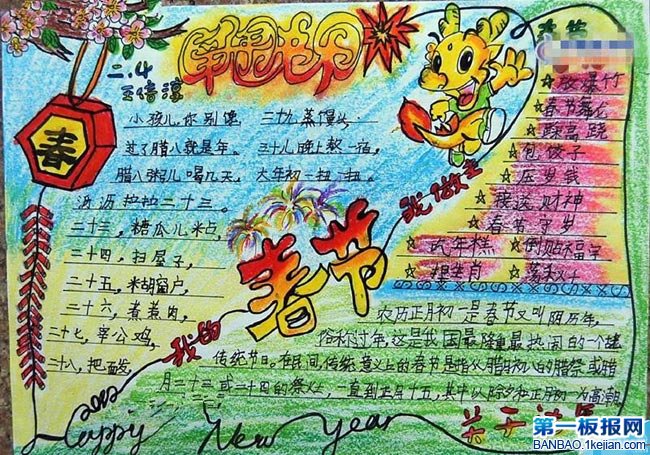 二.4
春
小孩儿,你别馋
过了腊八就是年。
腊八粥儿喝几天,
沥沥拉拉二十三。
二十三,糖瓜儿粘,
二十四,扫屋子,
二十五,米胡窗户,
二十六,煮煮肉,
二十七,宰公鸡,
二十八,把面发,
二十九,蒸馒头
三十儿晚上熬一宿,
大年初一扭一扭。
春节
放爆竹
春节舞龙
踩高跷
包饺子
压岁钱
接送财神
春节守岁
倒贴福字
我的
春节
我做主
农历正月初一是春节又叫阴历年,
俗称过年,这是我国最隆重最热闹的一个
传统节日。在民间,传统意义上的春节是指从腊月初八的腊祭或腊
月二十三或二十四的祭灶,一直到正月十五,其中以除夕和正月初一为高潮
2012
Happy
New Year
第一板报网
BANBAO.1kejian.com